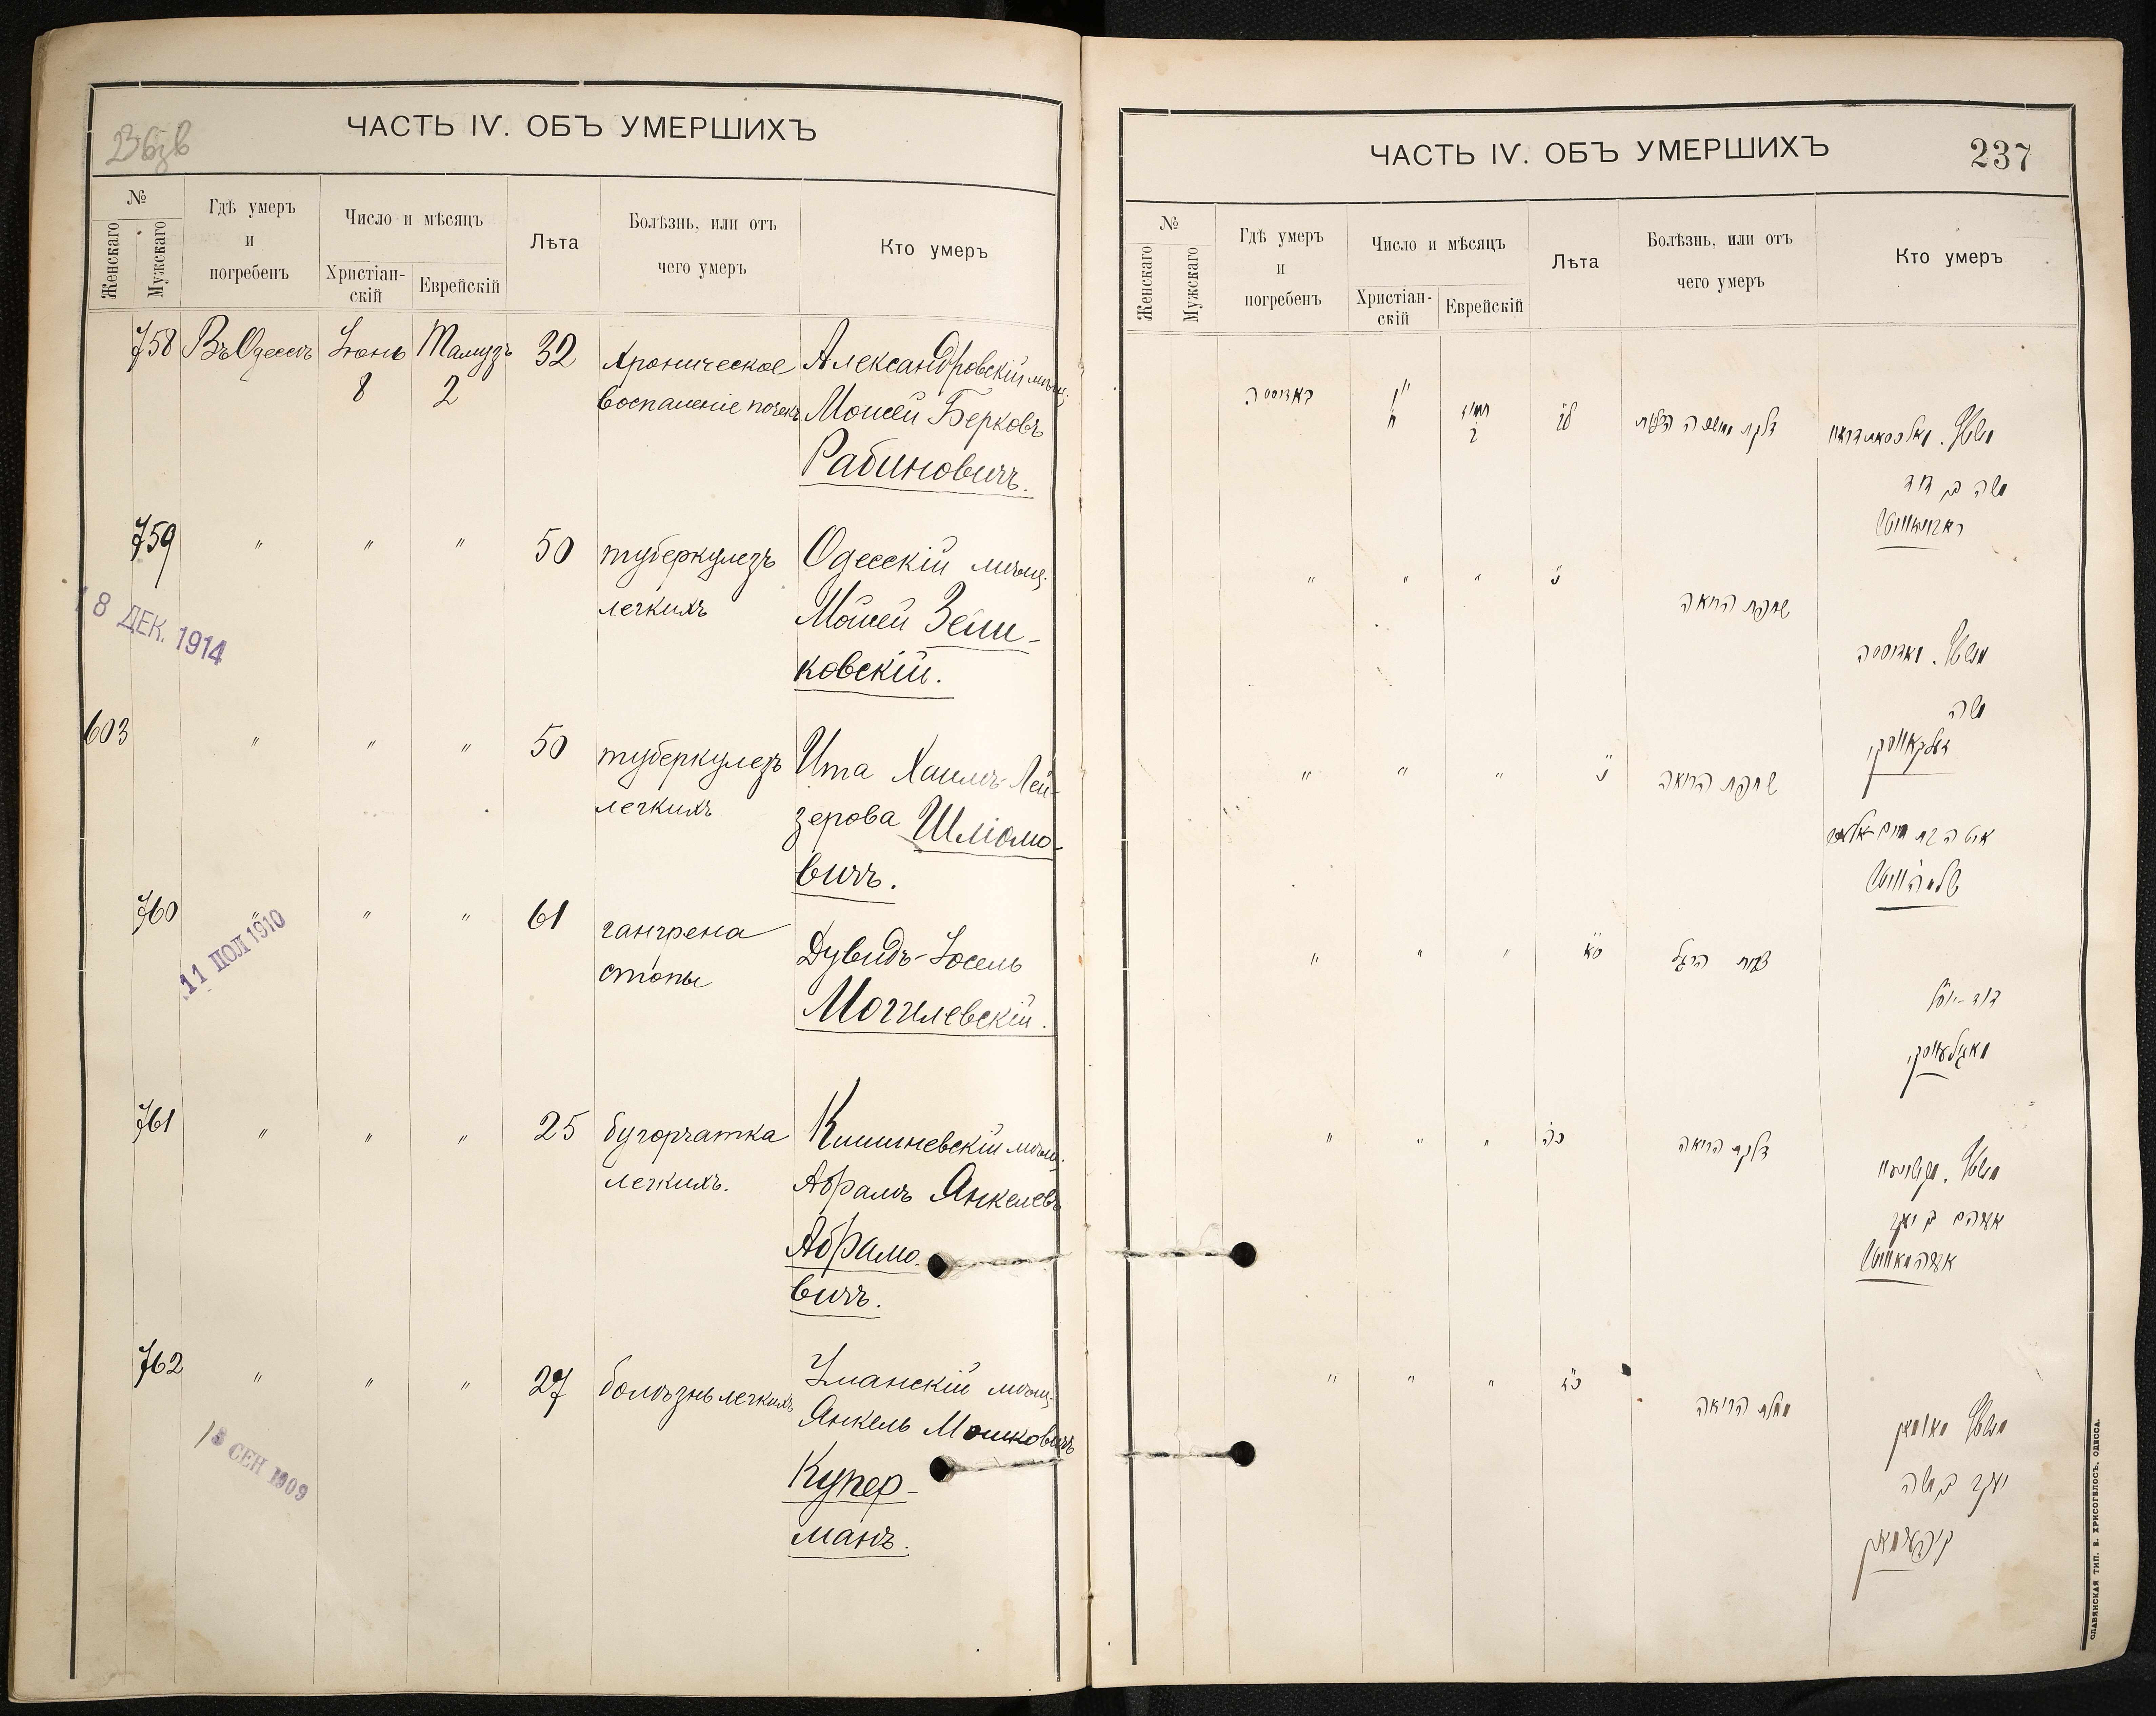 ЧАСТЬ IV. ОБЪ УМЕРШИХЪ
№
Женскаго
Мужскаго
Гдѣ умеръ
и
погребенъ
Число и мѣсяцъ
Христіан-
скій
Еврейскій
Лѣта
Болѣзнь, или отъ
чего умеръ
Кто умеръ
758 Въ Одессѣ Іюнь Тамузъ 32 Хроническое Александровскій мѣщ.
8 2 воспаленіе почекъ Мошей Берковъ
Рабиновичъ.
759 " " " 50 туберкулезъ Одесскій мѣщ.
легкихъ Мошей
ковскій.
18 ДЕК. 1914
603 " " " 50 туберкулезъ Ита Хаимъ-Лей-
легкихъ зерова Шліомо-
вичъ.
760 " " " 61 гангрена Дувидъ-Іосель
стопы Могилевскій.
11 ІЮЛ 1910
761 " " " 25 бугорчатка Кишиневскій мѣщ.
легкихъ. Абрамъ Янкелевъ
Абрамо-
вичъ.
762 " " " 27 болѣзнь легкихъ Уманскій мѣщ.
Янкель Мошковичъ
Купер-
манъ.
СЕН 1909
ЧАСТЬ IV. ОБЪ УМЕРШИХЪ 237
№
Женскаго
Мужскаго
Гдѣ умеръ
и
погребенъ
Число и мѣсяцъ
Христіан-
скій
Еврейскій
Лѣта
Болѣзнь, или отъ
чего умеръ
Кто умеръ
באדוססה
תמוז
ח ב לב
משה בן דוב
ראבינאוויטש
" " " נ שחפת הריאה
משה
" " " נ שחפת הריאה
איטה בת חיים אליעזר
" " " סא הרגל
דוד-יוסל
מאגילעווסקי
" " " כה דלקת הריאה
אברהם בן יעקב
אבראמאוויטש
" " " כז מחלת הריאה
יעקב בן משה
קופערמאן
СЛАВЯНСКАЯ ТИП. Е. ХРИСОГЕЛОСЪ, ОДЕССА.